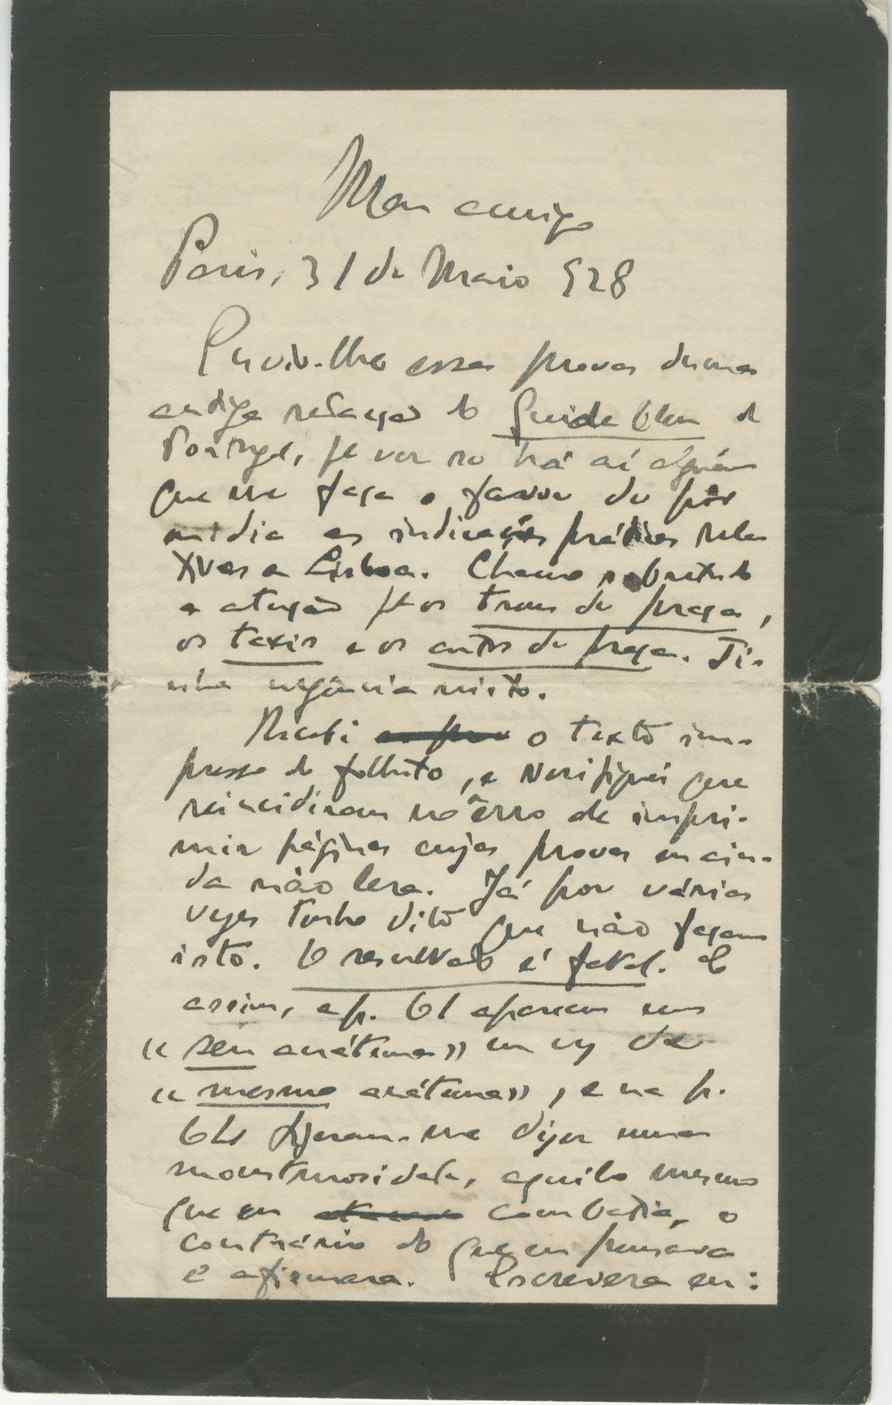 Meu amigo
Paris, 31 de Maio 928
Envio-lhe essas provas duma
antiga redacção do Guide bleu de
Portugal, pª ver se há aí alguém
que me faça o favor de pôr
em dia as indicações práticas rela-
tivas a Lisboa. Chamo sobretudo
a atenção pª os trens de praça,
os taxis e os autos de praça. Ti-
nha urgência nisto.
Recebi o texto im-
presso do folheto, e verifiquei que
reincidiram no êrro de impri-
mir páginas cujas provas eu ain-
da não lera. Já por várias
vezes tenho dito que não façam
isto. O resultado é fatal. E
assim, a p. 61 aparecem uns
«seu anátema» em vez de
«mesmo anátema», e na p.
64 fizeram-me dizer uma
monstruosidade, aquilo mesmo
que eu combatia, o
contrário do que eu pensava
e afirmara. Escrevera eu: